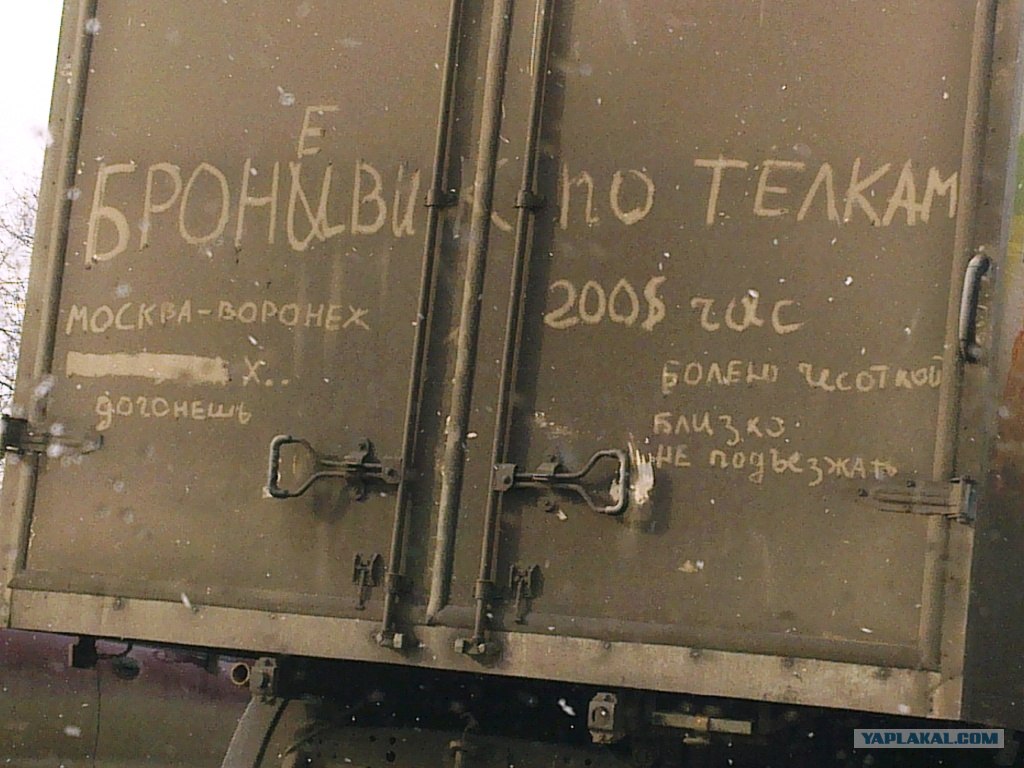 Е
БРОНИВИК по ТЕЛКАМ
МОСКВА-ВОРОНЕЖ
Х..
догонешь
200$ час
БОЛЕЮ чесоткой
БЛИЗКО.
НЕ подъезжать
YAPLAKAL.COM